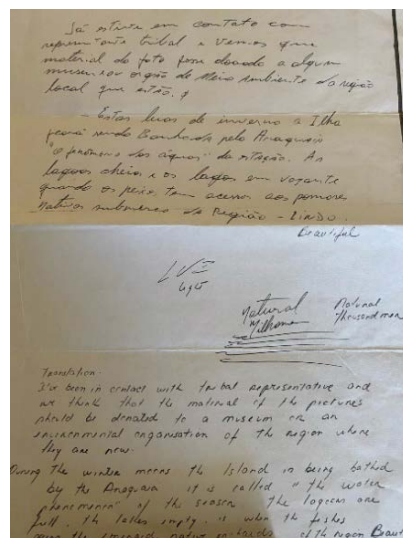 Já estive em contato com
representante tribal e vemos que
material da foto fosse doado a algum
museu ou orgão de Meio Ambiente da região
local que estão.
- Estas luas de inverno a Ilha
ficará sendo Banhada pelo Araguaia
"O fenômeno das águas" da estação. As
lagoas cheias e os lagos em vazante
quando os peixes tem acesso aos pomares
Nativos submersos da Região - LINDO.
Beautiful
Natural
Milhomem
Natural
Thousand man
Translation.
I've been in contact with tribal representative and
we think that the material of the pictures
should be donated to a museum or an
environmental organisation of the region where
they are now.
During The winter moons the Island is being bathed
by the Araguaia it is called "the water
phenomenon" of the season The lagoons are
full, the lakes empty, is when the fishes
native orchards of the region Beaut